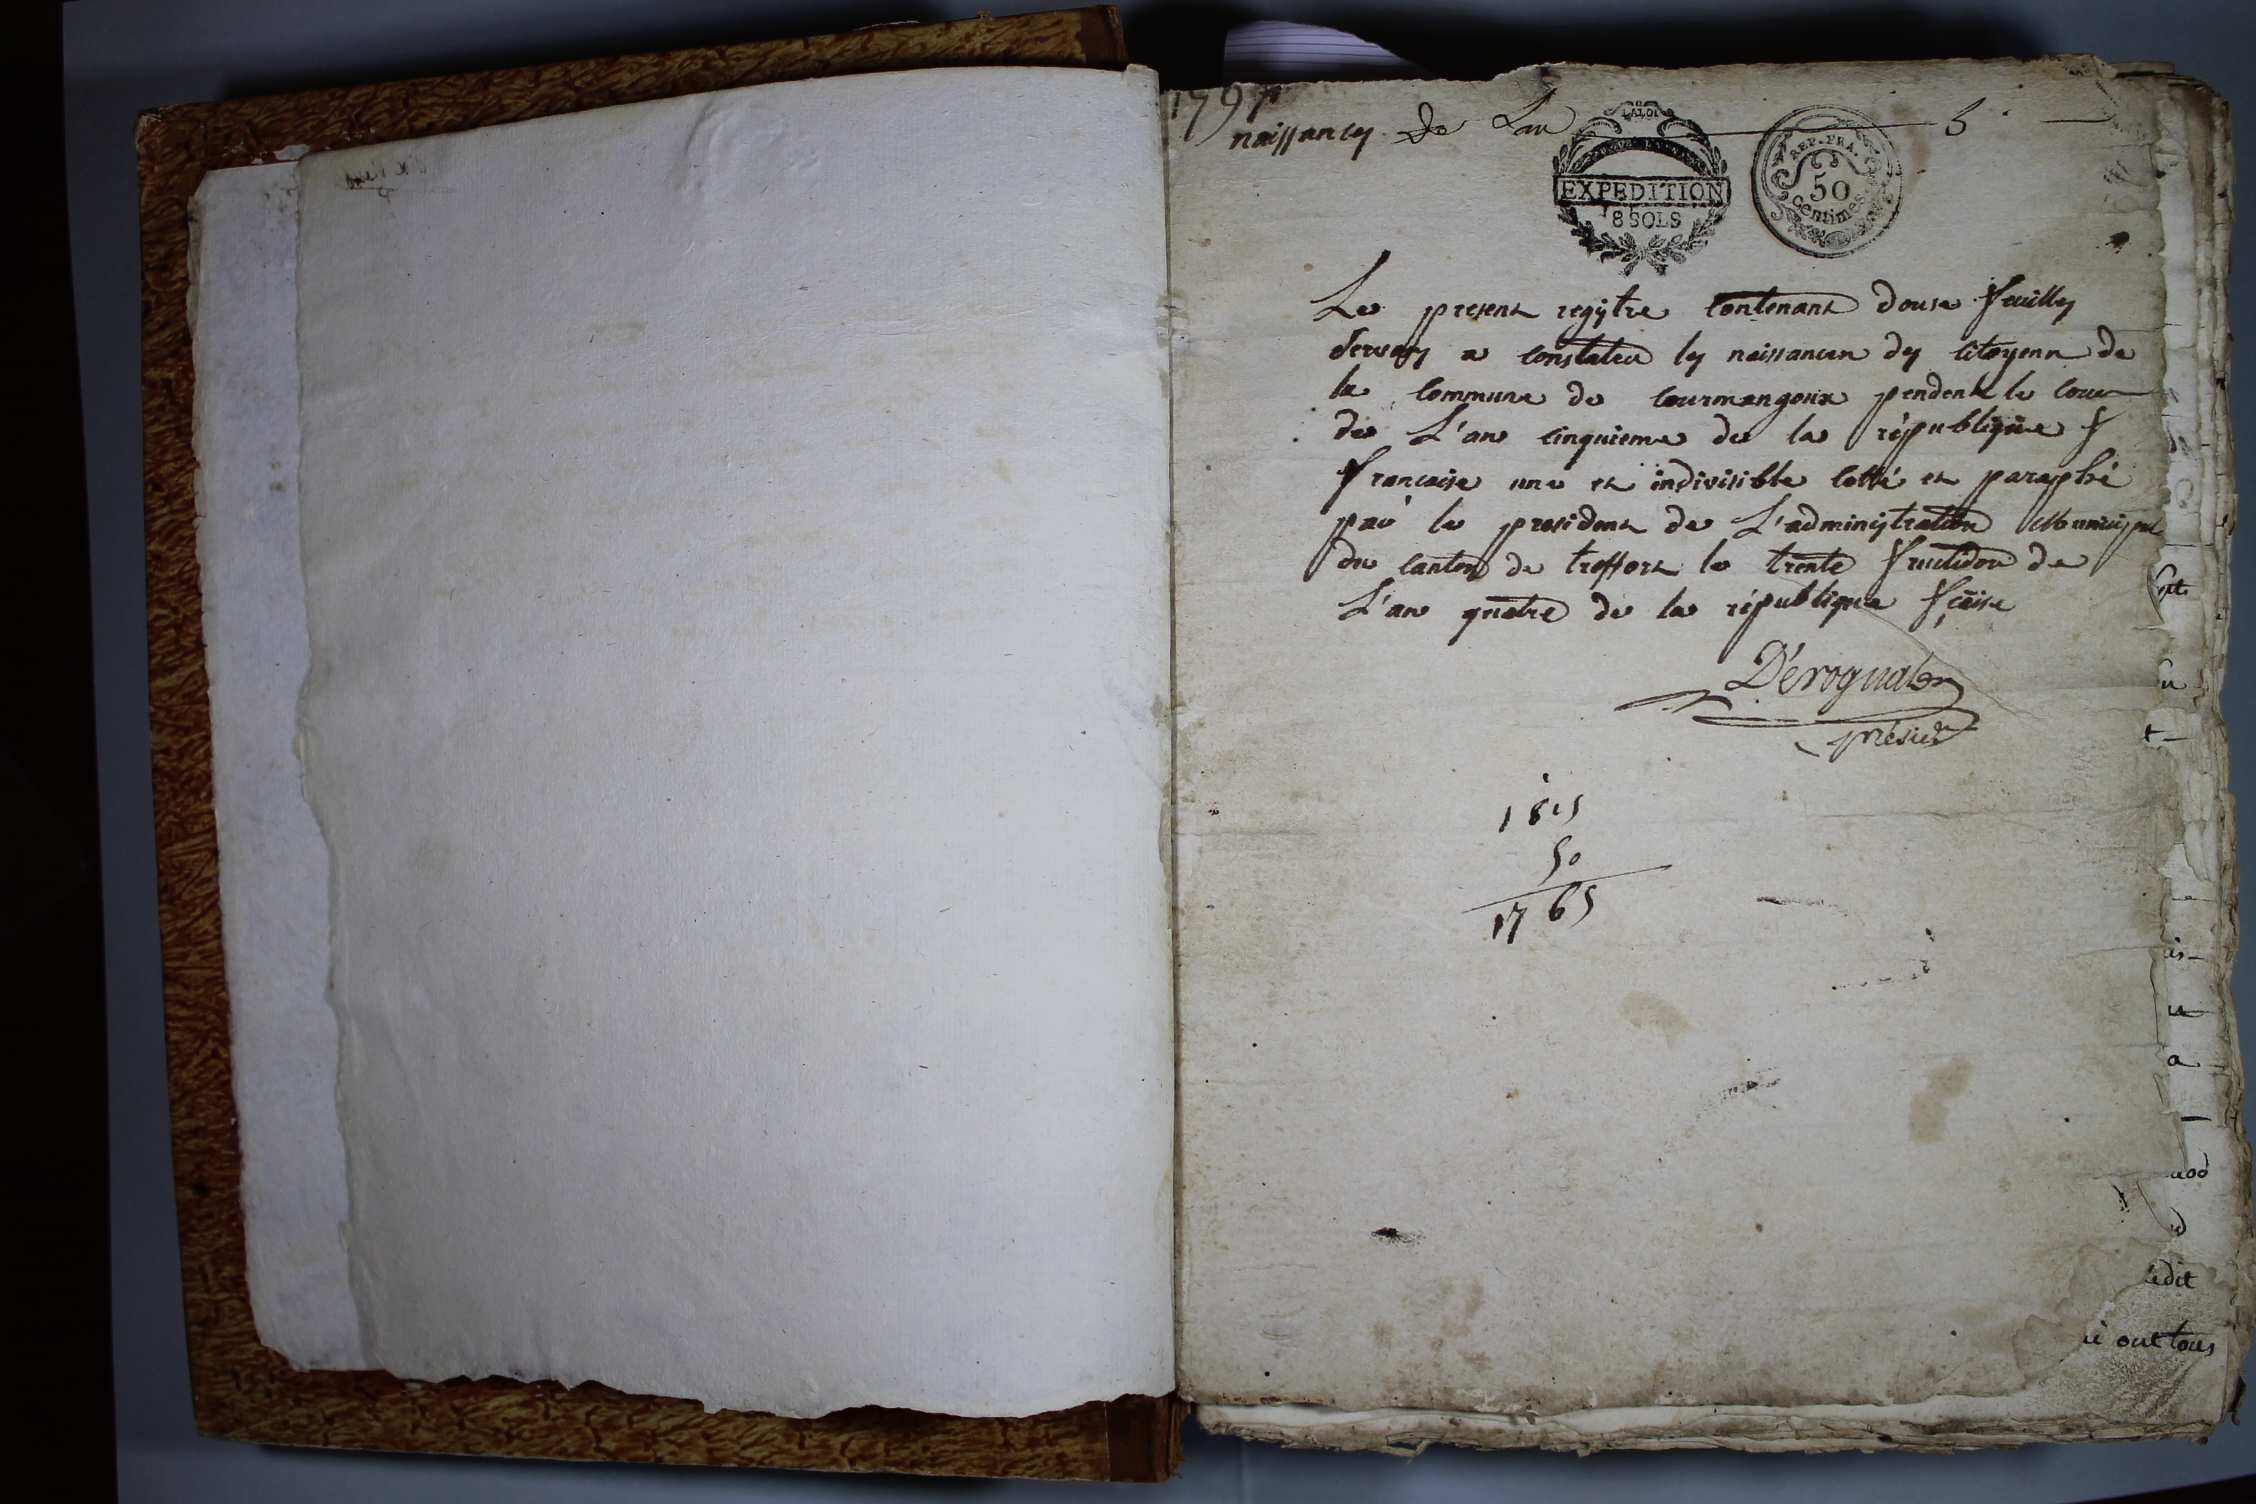 1797
naissances De Lan 5
LA LOI
EXPEDITION
8 SOLS
REP. FRA.
50
centimes
Le present registre contenant douse feuilles
servans a constater les naissances des citoyens de
la commune de courmangoux pendent le cours
de L'an cinquieme de la république f
francaise une et indivisible cotté et paraphé
par le president de L'administration Municipal
du canton de treffort le trente fructidor de
L'an quatre de la république fçaise
Déroguat
présidt
1815
50
1765
edit
ont tous